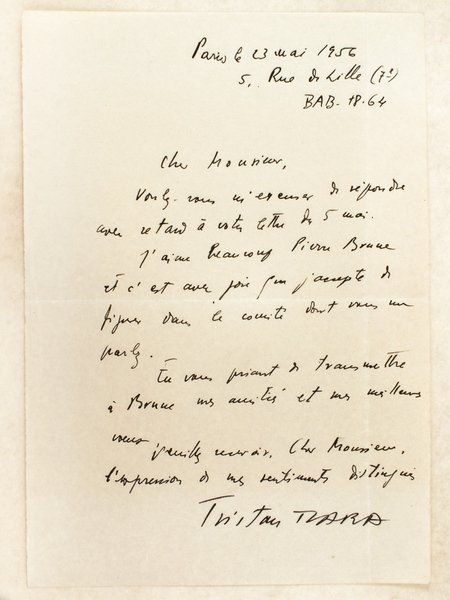 Paris le 23 mai 1956
5, Rue de Lille (7e)
BAB. 18.64
Cher Monsieur,
Voulez-vous m'excuser de répondre
avec retard à votre lettre du 5 mai.
J'aime beaucoup Pierre Brune
et c'est avec joie que j'accepte de
figurer dans le comité dont vous me
parlez.
En vous priant de transmettre
à Brune mes amitiés et mes meilleurs
vœux veuillez recevoir, Cher Monsieur,
l'expression de mes sentiments distingués
Tristan TZARA